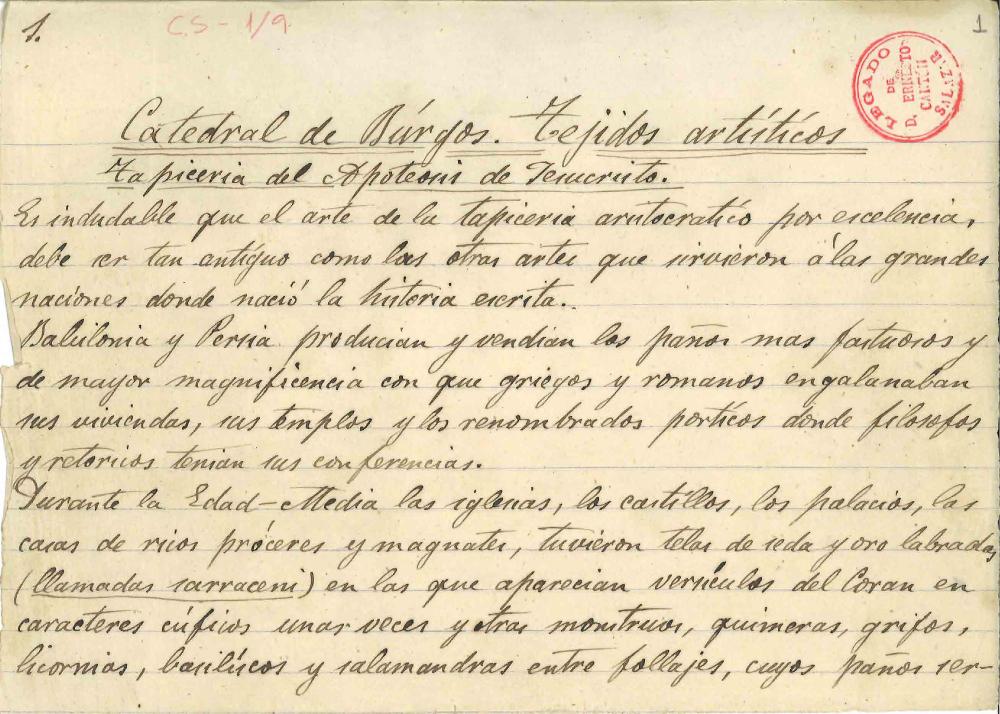 1.
CS-1/9
1
LEGADO
DE
D. ERNESTO
CANTÓN
SALAZAR
Catedral de Búrgos. Tejidos artísticos
Tapiceria del Apoteosis de Jesucristo.
Es indudable que el arte de la tapiceria aristocratico por escelencia,
debe ser tan antíguo como las otras artes que sirvieron á las grandes
naciones donde nació la historia escrita.
Babilonia y Persia producian y vendian los paños mas fastuosos y
de mayor magnificencia con que griegos y romanos engalanaban
sus viviendas, sus templos y los renombrados pórticos donde filosofos
y retoricos tenian sus conferencias.
Durante la Edad-Media las iglesias, los castillos, los palacios, las
casas de ricos próceres y magnates, tuvieron telas de seda y oro labradas
(llamadas sarraceni) en las que aparecian versículos del Coran en
caracteres cúficos unas veces y otras monstruos, quimeras, grifos,
licornias, basilíscos y salamandras entre follajes, cuyos paños ser-